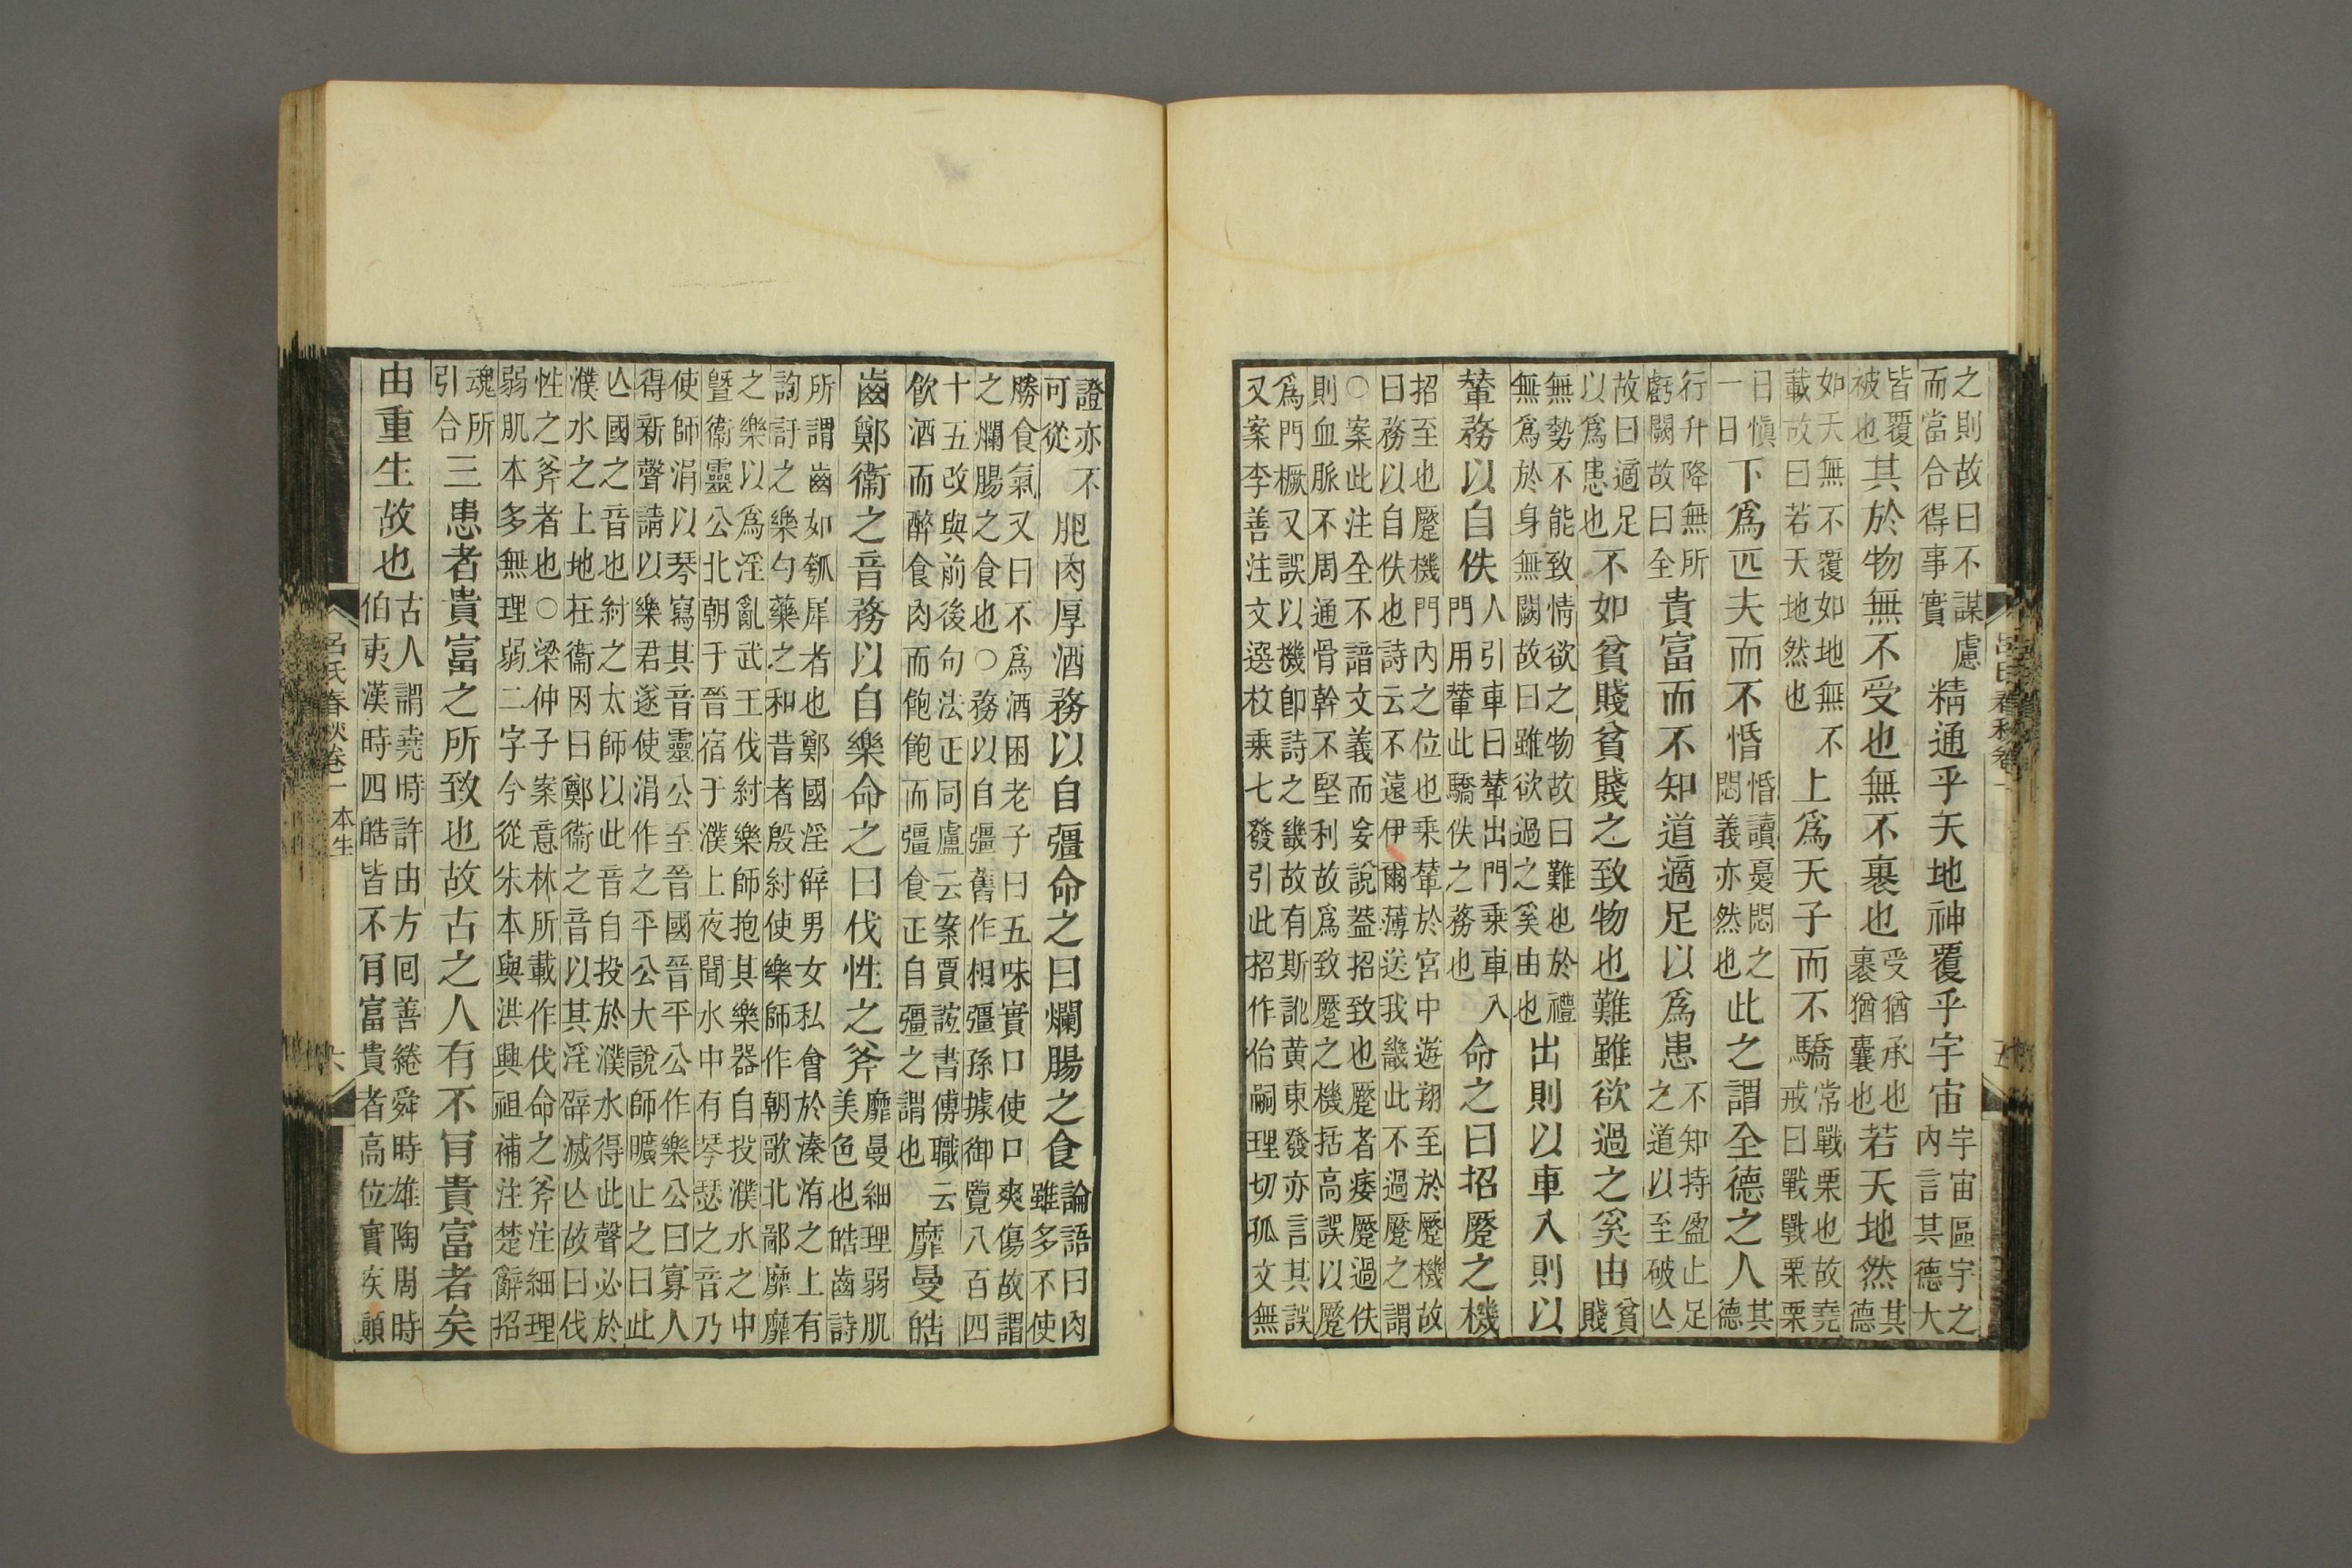 之則故曰不謀慮而當合得事實精通乎天地神覆乎宇宙宇宙區宇之內言其德大
皆覆被也其於物無不受也無不裹也受猶承也裹猶囊也若天地然其德
如天無不覆如地無不載故曰若天地然也上爲天子而不驕常戰栗也故堯戒曰戰戰栗栗
日愼一日下爲匹夫而不惛惛讀憂悶之悶義亦然也此之謂全德之人其德
行升降無所虧闕故曰全貴富而不知道適足以爲患不知持盈止足之道以至破亾
故曰適足以爲患也不如貧賤貧賤之致物也難雖欲過之奚由貧賤
無勢不能致情欲之物故曰難也於禮無爲於身無闕故曰雖欲過之奚由也出則以車入則以
輦務以自佚人引車曰輦出門乘車入門用輦此驕佚之務也命之曰招蹷之機
招至也蹷機門內之位也乘輦於宮中遊翔至於蹷機故
曰務以自佚也詩云不遠伊爾薄送我畿此不過蹷之謂
○案此注全不諳文義而妄說葢招致也蹷者痿蹷過佚
則血脈不周通骨幹不堅利故爲致蹷之機括高誤以蹷
爲門橛又誤以機卽詩之畿故有斯訛黃東發亦言其誤
又案李善注文選枚乘七發引此招作佁嗣理切孤文無
呂氏春秋卷一
五
證亦不可從肥肉厚酒務以自彊命之曰爛腸之食論語曰肉雖多不使
勝食氣又曰不爲酒困老子曰五味實口使口爽傷故謂
之爛腸之食也○務以自彊舊作相彊孫據御覽八百四
十五改與前後句法正同盧云案賈誼書傅職云飮酒而醉食肉而飽飽而彊食正自彊之謂也靡曼皓
齒鄭衞之音務以自樂命之曰伐性之斧靡曼細理弱肌美色也皓齒詩
所謂齒如瓠犀者也鄭國淫辟男女私會於溱洧之上有
詢訏之樂勺藥之和昔者殷紂使樂師作朝歌北鄙靡靡
之樂以爲淫亂武王伐紂樂師抱其樂器自投濮水之中
曁衞靈公北朝于晉宿于濮上夜聞水中有琴瑟之音乃
使師涓以琴寫其音靈公至晉國晉平公作樂公曰寡人
得新聲請以樂君遂使涓作之平公大說師曠止之曰此
亾國之音也紂之太師以此音自投於濮水得此聲必於
濮水之上地在衞因曰鄭衞之音以其淫辟滅亾故曰伐
性之斧者也○梁仲子案意林所載作伐命之斧注細理
弱肌本多無理弱二字今從朱本與洪興祖補注楚辭招
魂所引合三患者貴富之所致也故古之人有不肯貴富者矣
由重生故也古人謂堯時許由方回善綣舜時雄陶周時伯夷漢時四皓皆不肯富貴者高位實疾顚
呂氏春秋卷一 本生
六